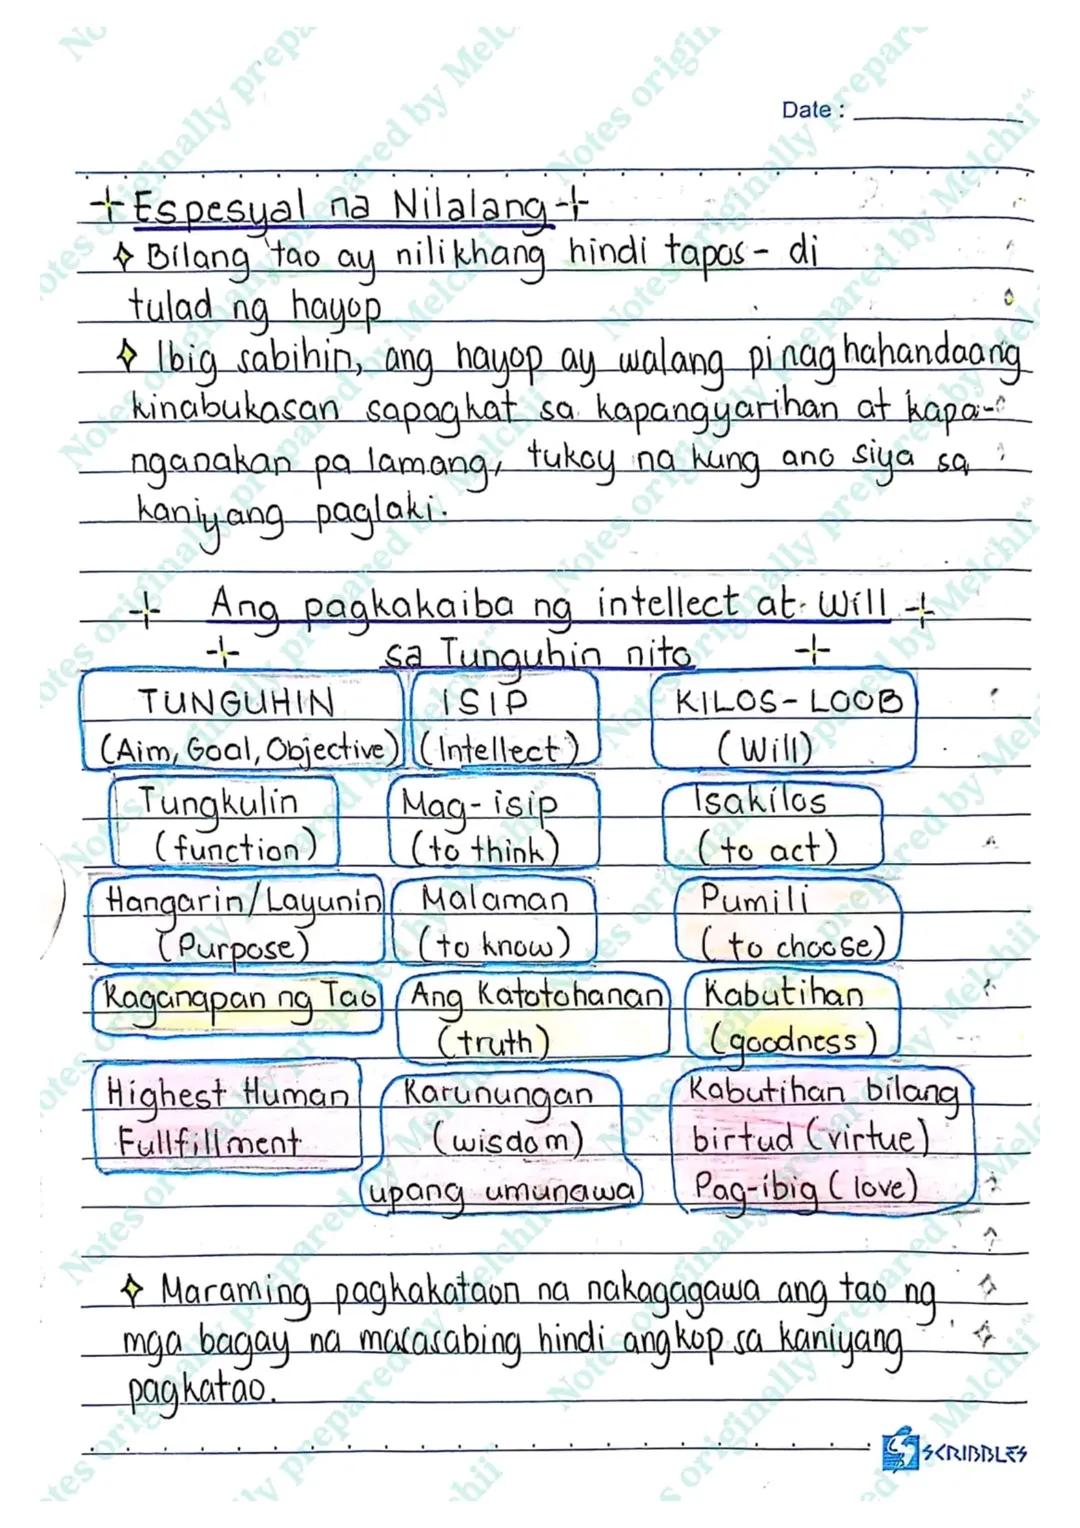 Date :
Espesyal na Nilalang
Bilang tao ay nilikhang hindi tapos - di
tulad ng hayop
Ibig sabihin, ang hayop ay walang pinaghahandaang
kinabukasan sapagkat sa kapangyarihan at kapa-
nganakan pa lamang, tukoy na kung ano siya sa
kaniyang paglaki.
Ang pagkakaiba ng intellect at Will
sa Tunguhin nito
TUNGUHIN ISIP KILOS-LOOB
(Aim, Goal, Objective) (Intellect) (Will)
Tungkulin Mag-isip Isakilos
(function) (to think) (to act)
Hangarin/Layunin Malaman Pumili
(Purpose) (to know) (to choose)
Kaganapan ng Tao Ang Katotohanan Kabutihan
(truth) (goodness)
Highest Human Karunungan Kabutihan bilang
Fullfillment (wisdom) birtud (virtue)
upang umunawa Pag-ibig (love)
Maraming pagkakataon na nakagagawa ang tao ng
mga bagay na masasabing hindi angkop sa kaniyang
pagkatao.
SCRIBBLES
Notes originally prepared by Melchii